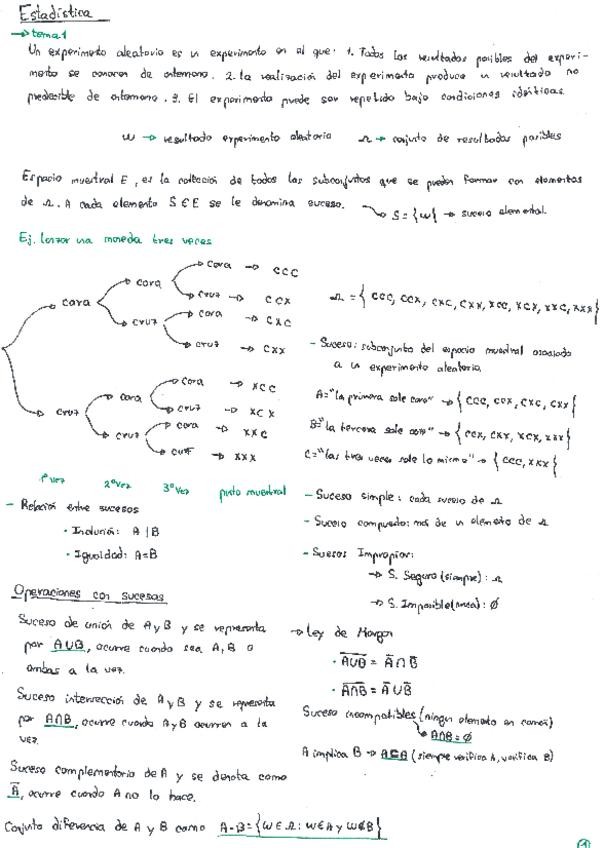 Estadística
→ tema 1
Un experimento aleatorio es un experimento en el que: 1. Todos los resultados posibles del experi-
mento se conocen de antemano. 2. La realización del experimento produce un resultado no
predecible de antemano. 3. El experimento puede ser repetido bajo condiciones idénticas.
w → resultado experimento aleatorio
Ω → conjunto de resultados posibles
Espacio muestral E, es la colección de todos los subconjuntos que se pueden formar con elementos
de Ω. A cada elemento S ∈ E se le denomina suceso. → S = {w} → suceso elemental.
Ej. lanzar una moneda tres veces
cara → cara → cara → CCC
cruz → CCX
cruz → cara → CXC
cruz → CXX
cruz → cara → cara → XCC
cruz → XCX
cruz → cara → XXC
cruz → XXX
1ª vez 2ª vez 3ª vez punto muestral
Ω = {CCC, CCX, CXC, CXX, XCC, XCX, XXC, XXX}
- Suceso: subconjunto del espacio muestral asociado
a un experimento aleatorio.
A="la primera sale cara" → {CCC, CCX, CXC, CXX}
B="la tercera sale" → {CCX, CXX, XCX, XXX}
C="las tres veces sale lo mismo" → {CCC, XXX}
- Suceso simple: cada suceso de Ω
- Suceso compuesto: más de un elemento de Ω
- Sucesos Impropios:
→ S. Seguro (siempre): Ω
→ S. Imposible (nunca): Ø
- Relación entre sucesos
· Inclusión: A | B
· Igualdad: A=B
Operaciones con sucesos
Suceso de unión de A y B y se representa
por A∪B, ocurre cuando sea A, B o
ambas a la vez.
Suceso intersección de A y B y se representa
por A∩B, ocurre cuando A y B ocurren a la
vez.
Suceso complementario de A y se denota como
A̅, ocurre cuando A no lo hace.
Conjunto diferencia de A y B como A-B={w∈Ω: w∈A y w∉B}
→ Ley de Morgan
· A̅∪̅B̅ = A̅ ∩ B̅
· A̅∩̅B̅ = A̅ ∪ B̅
Suceso incompatibles (ningun elemento en común)
→ A∩B = Ø
A implica B → (siempre verifica A, verifica B)
1